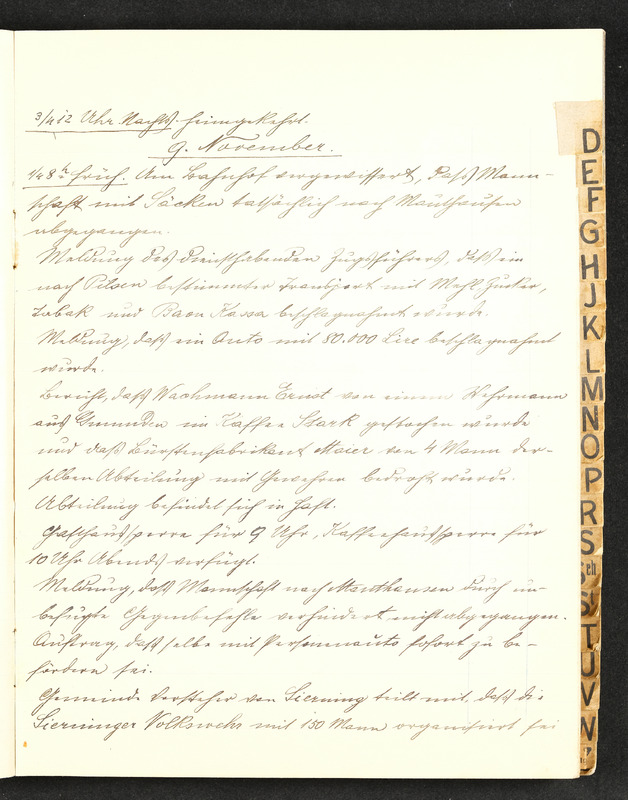 3/4 12 Uhr Nachts heimgekehrt.
9. November.
1/4 8 h früh. Am Bahnhof vergewissert, daß Mann-
schaft mit Säcken tatsächlich nach Mauthausen
abgegangen.
Meldung des diensthabenden Zugsführers, daß ein
nach Pilsen bestimmter Transport mit Mehl, Zucker,
Tabak und Baon Kassa beschlagnahmt wurde.
Meldung, daß ein Auto mit 80.000 Lire beschlagnahmt
wurde.
Bericht, daß Wachmann Ernst von einem Wehrmann
aus Gmunden im Kaffee Stark gestochen wurde
und daß Bürstenfabrikant Maier von 4 Mann der-
selben Abteilung mit Gewehren bedroht wurde.
Abteilung befindet sich in Haft.
Gasthaussperre für 9 Uhr, Kaffeehaussperre für
10 Uhr Abends verfügt.
Meldung, daß Mannschaft nach Mauthausen durch un-
befugte Gegenbefehle verhindert, nicht abgegangen.
Auftrag, daß selbe mit Personenauto sofort zu be-
fördern sei.
Gemeinde Vorsteher von Sierning teilt mit, daß die
Sierninger Volkswehr mit 150 Mann organisiert sei
D
E
F
G
H
J
K
L
M
N
O
P
R
S
Sch
St
T
U
V
W